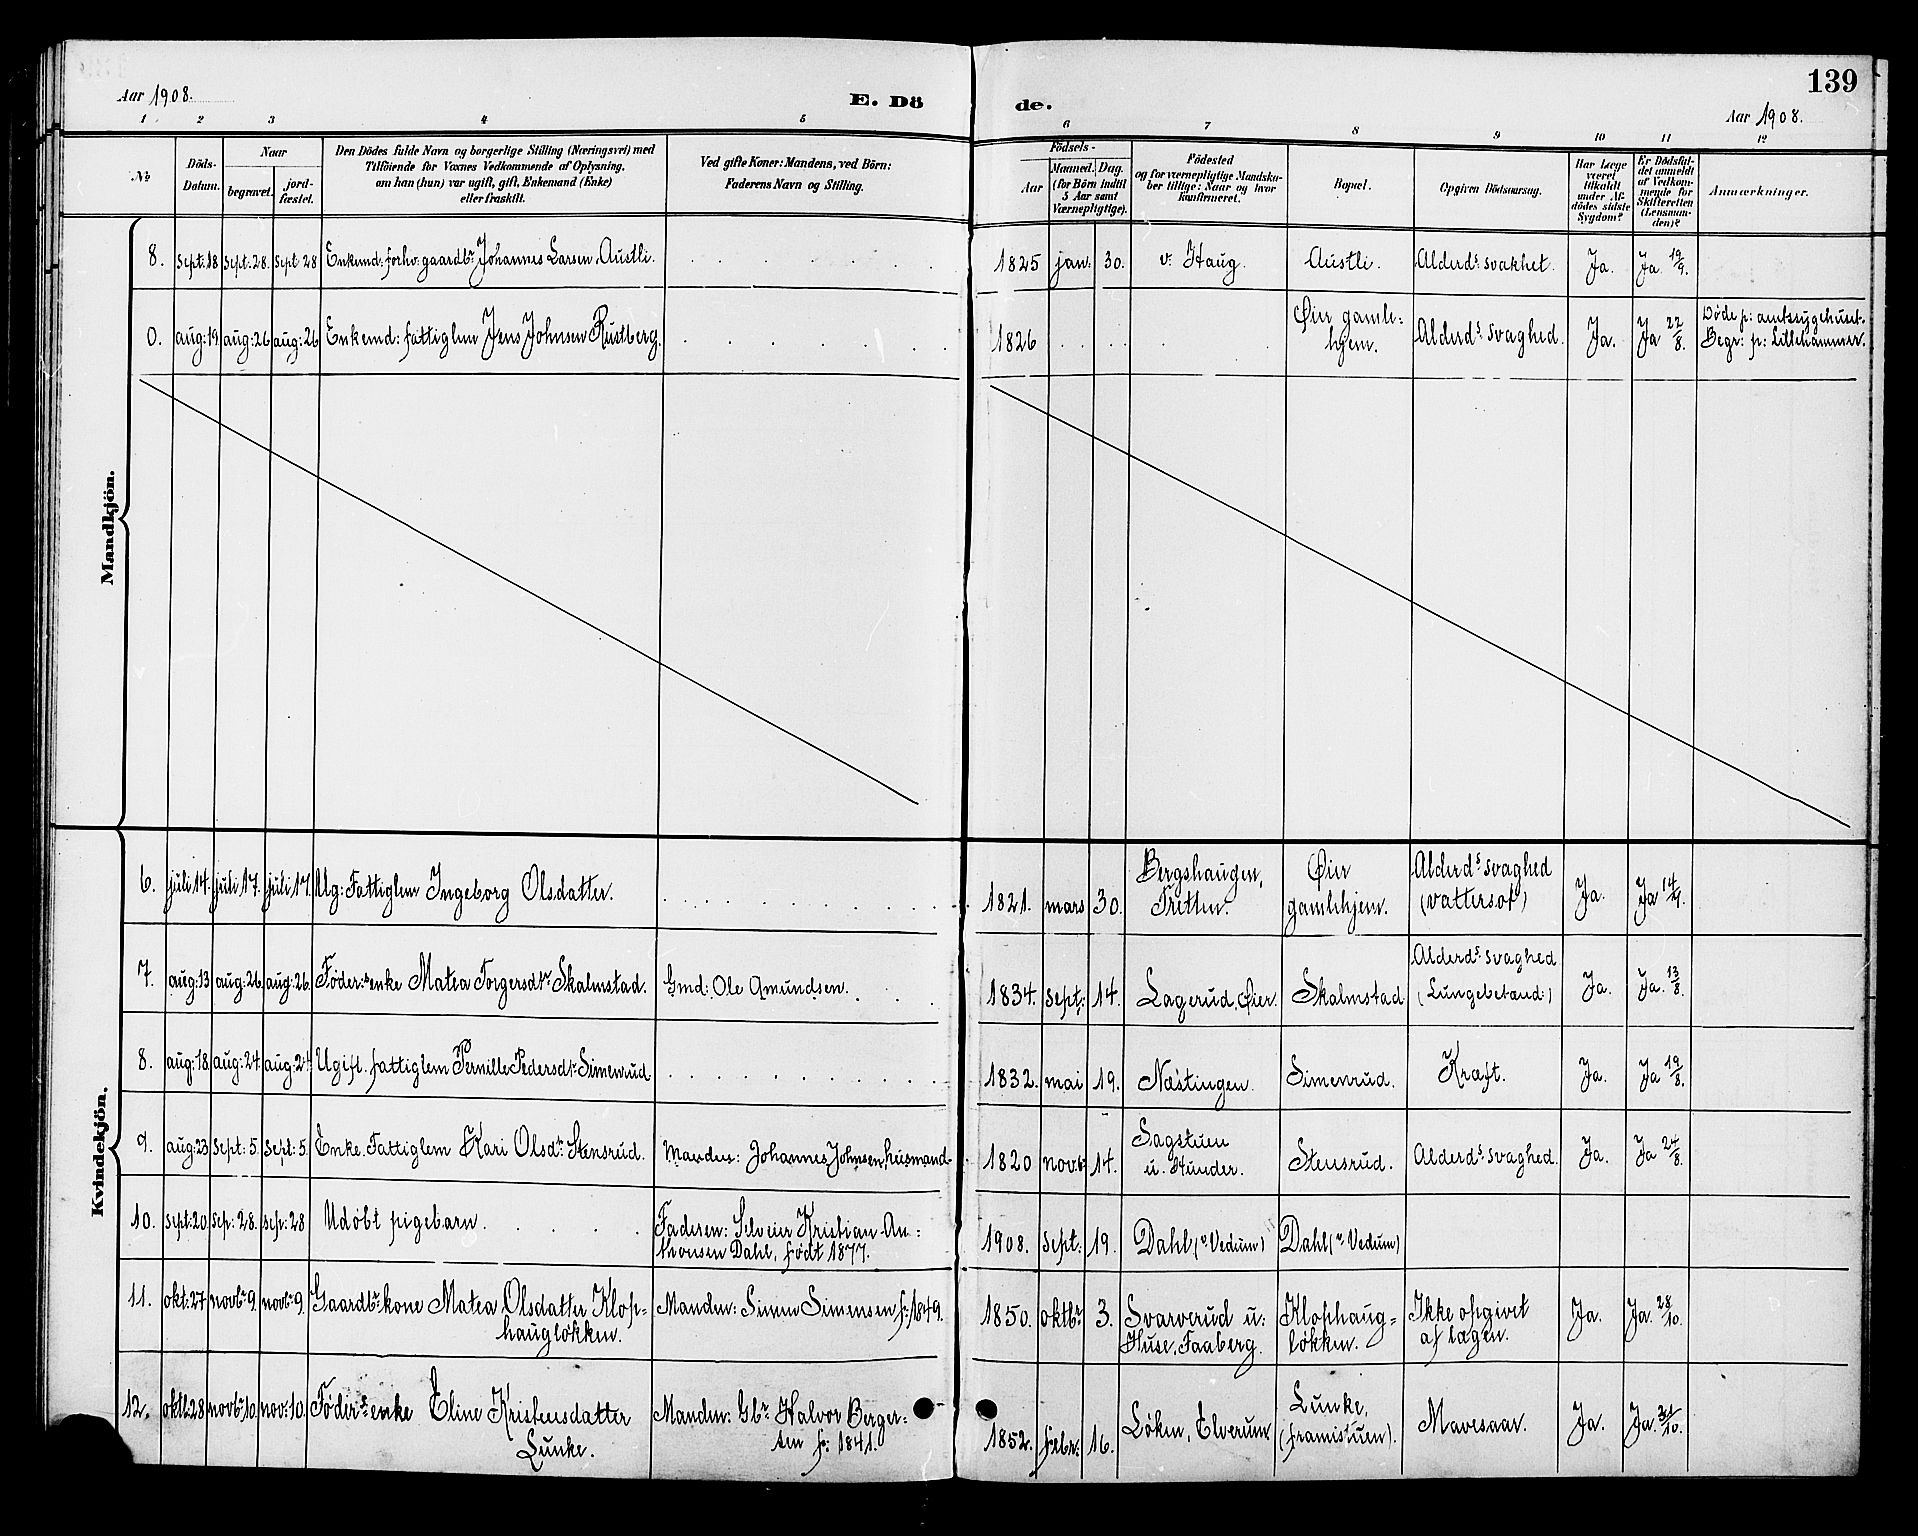 139
Aar 1908.
E. Dö
de.
Aar 1908.
1 2 3 4 5 6 7 8 9 10 11 12
No
Döds-
Datum.
Naar
begravet.
jord-
fæstet.
Den Dödes fulde Navn og borgerlige Stilling (Næringsvei) med
Tilföiende for Voxnes Vedkommende af Oplysning,
om han (hun) var ugift, gift, Enkemand (Enke)
eller fraskilt.
Ved gifte Koner: Mandens, ved Börn:
Faderens Navn og Stilling.
Födsels-
Aar
Maaned. Dag.
(for Börn indtil
5 Aar samt
Værnepligtige).
Födested
og for værnepligtige Mandska-
ber tillige: Naar og hvor
konfirmeret.
Bopæl.
Opgiven Dödsaarsag.
Har Læge
været
tilkaldt
under Af-
dödes sidste
Sygdom?
Er Dödsfal-
det anmeldt
af Vedkom-
mende for
Skifteretten
(Lensman-
den)?
Anmærkninger.
Mandkjön.
8. Sept: 18 Sept: 28. Sept 28 Enkemd: forhv: gaardbr Johannes Larsen, Austli. 1825 jan: 30. v: Haug. Austli. Alderds: svakhet. Ja. Ja 19/9.
0. aug: 19. aug: 26 aug: 26 Enkemd: fattiglem Jens Johnsen Rustberg. 1826 Øier gamle-
hjem. Alderds: svaghed. Ja. Ja 22/8. Døde p: amtssygehuset.
Begr: p: Lillehammer.
Kvindekjön.
6. juli 14. juli 17. juli 17. Ug: Fattiglem Ingeborg Olsdatter. 1821. mars 30. Bergshaugen,
Tretten. Øier
gamlehjem. Alderds svaghed
(vattersot) Ja. Ja 14/7.
7. aug: 13 aug: 26. aug: 26. Føder:senke Matea Torgersdtr Skalmstad. Gmd: Ole Amundsen. 1834. Sept: 14. Lagerud, Øier. Skalmstad Alderds: svaghed
(Lungebetænd:) Ja. Ja. 13/8.
8. aug: 18. aug: 24. aug: 24 Ugift. fattiglem Pernille Pedersdtr: Simenrud. 1832. mai 19. Næstingen. Simenrud. Kræft. Ja. Ja 19/8.
9. aug: 23 Sept: 5. Sept: 5. Enke. Fattiglem Kari Olsdtr: Stensrud. Manden: Johannes Johnsen, husmand 1820 novb: 14. Sagstuen
u. Hunder. Stensrud. Alderds: svaghed. Ja. Ja 24/8.
10. Sept: 20. Sep: 28. Sep: 28 Udøbt pigebarn. Faderen: Selveier Kristian An-
thonsen Dahl, født 1877. 1908. Sept: 19. Dahl (v Vedum) Dahl (v Vedum)
11. okt: 27 novbr 9. novbr 9. Gaardbr:kone Matea Olsdatter Klop-
hauglökken. Manden: Simen Simensen f: 1849. 1850. oktbr 3. Svarverud u:
Huse, Faaberg. Klophaug-
løkken. Ikke opgivet
af lægen. Ja. Ja. 28/10.
12. oktb: 28 novbr: 10. nov: 10. Føder:senke Eline Kristensdatter
Lunke. Manden: Gbr. Halvor Berger-
sen f: 1841. 1852. febr: 16. Løken, Elverum. Lunke,
(framistuen). Mavesaar. Ja. Ja. 31/10.